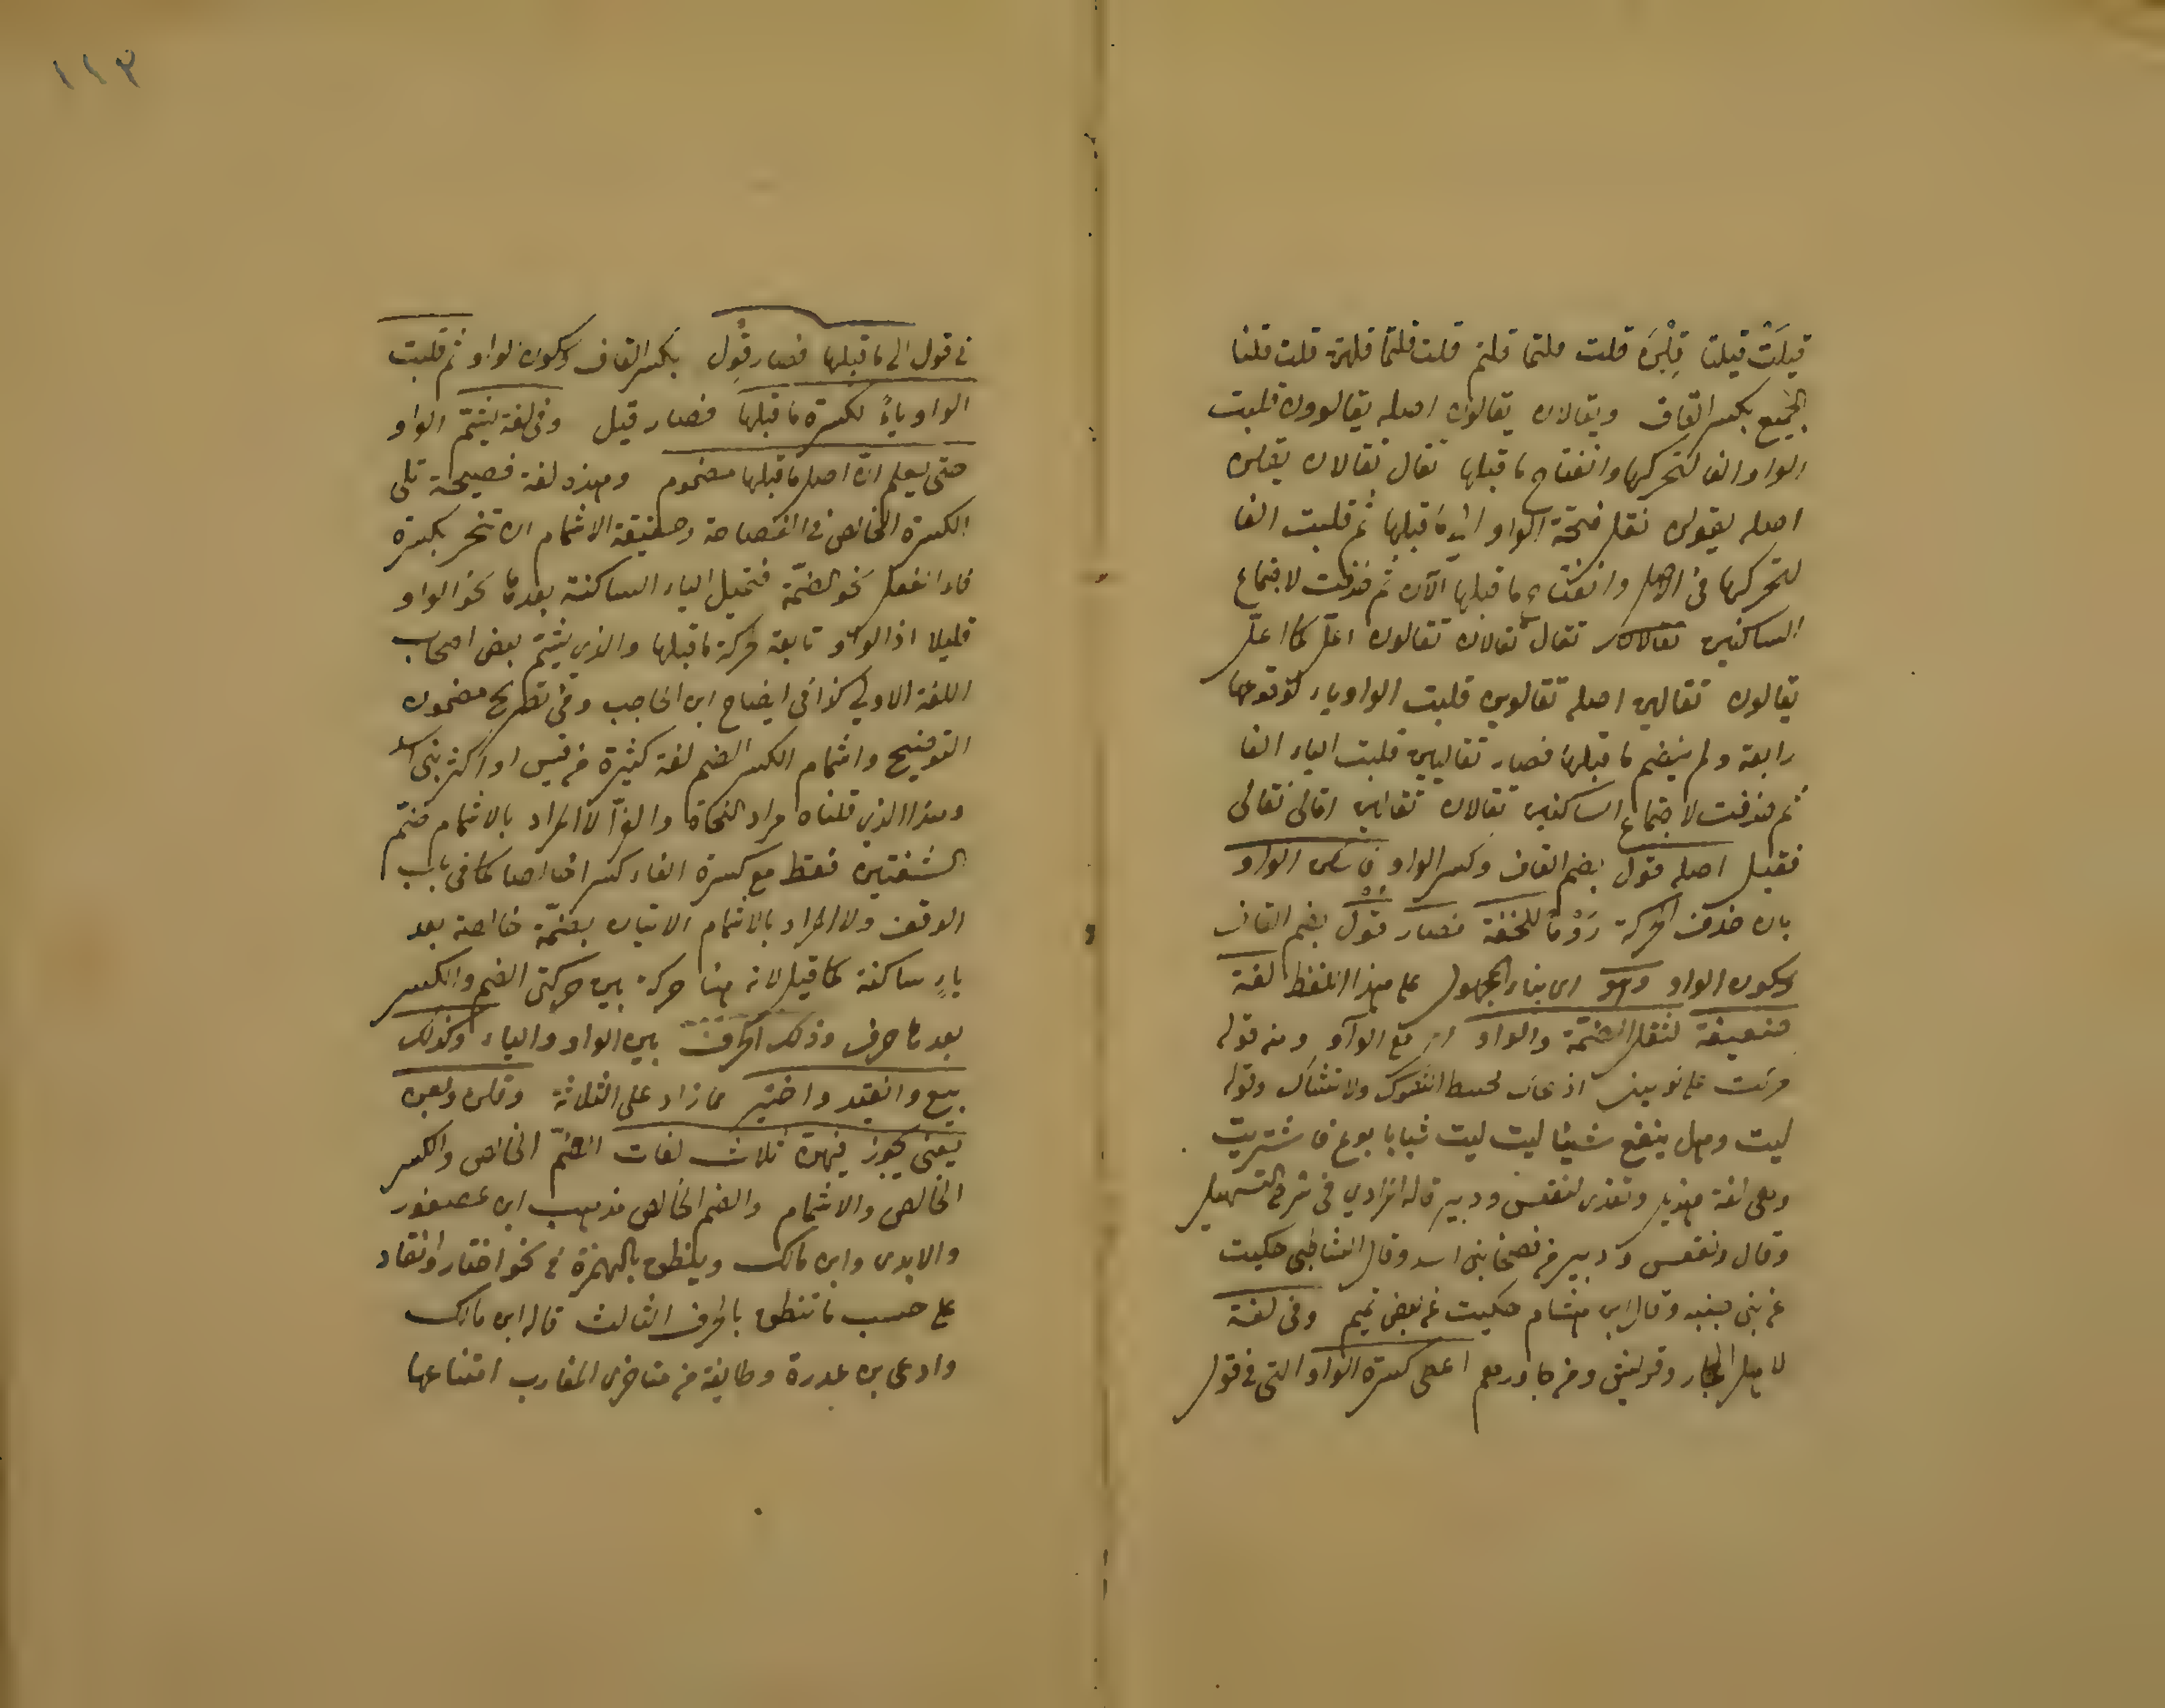 قيلَتْ قيلتا قِلْنَ قلت قلتما قلتم قلت قلتما قلتن قلت قلنا
الجميع بكسر القاف ويقالان يقالون اصله يقالوون قلبت
الواو الفا لتحركها وانفتاح ما قبلها تقال تقالان يقلن
اصله يقولن نقل فتحة الواو الى ما قبلها ثم قلبت الفا
لتحركها فى الاصل وانفتاح ما قبلها الآن ثم حذفت لاجتماع
الساكنين تقالان تقال تقالان تقالون اعلّ كما اعلّ
يقالون تقالين اصله تقالوين قلبت الواو ياء لوقوعها
رابعة ولم ينضم ما قبلها فصار تقاليين قلبت الياء الفا
ثم حذفت لاجتماع الساكنين تقالان تقالين اقالى نقالى
فقيل اصله قول بضم القاف وكسر الواو الواو
بان حذف الحركة رَوْمًا للخفة فصار قُوْلَ بضم القاف
وسكون الواو وهو اى بناء المجهول على هذا اللفظ لغة
ضعيفة لثقل الضمّة والواو اى مع الواو ومنه قوله
ولا تشاك وقوله
ليت وهل ينفع شيئا ليت ليت شبابا بوع فاشتريت
وهى لغة هذيل وتعزى لفقعس ودبير قاله المرادي فى شرح التسهيل
وقال وفقعس ودبير من فصحا بنى اسد وقال الشاطبى حكيت
عن بنى ضبة وقال ابن هشام حكيت عن بعض تميم وفى لغة
لاهل الحجاز وقريش ومن جاورهم اعطى كسرة الواو التى فى قول
فى قول الى ما قبلها فصار قِوْل بكسر القاف وسكون الواو ثم قلبت
الواو ياءً لكسرة ما قبلها فصار قيل وفى لغة يشمّ الواو
حتى يعلم انّ اصل ما قبلها مضموم وهذه لغة فصيحة تلى
الكسرة الخالص فى الفصاحة وحقيقة الاشمام ان تنحر بكسرة
فاء الفعل نحو الضمّة فتميل الياء الساكنة بعدها نحو الواو
قليلا اذ الواو تابعة لحركة ما قبلها والذى يشمّ بعض اصحاب
اللغة الاولى كذا فى ايضاح ابن الحاجب وفى تصريح مضمون
التوضيح واشمام الكسر الضم لغة كثيرة من قيس او اكثر بنى اسد
وهذا الذى قلناه مراد النحاة والقرّآ لا المراد بالاشمام ضمّ
الشفتين فقط مع كسرة الفاء كسرا خالصا كما فى باب
الوقف ولا المراد بالاشمام الاتيان بضمّة خالصة بعد
ياءٍ ساكنة كما قيل لانه هنا حركة بين حركتى الضم والكسر
بعدها حرف وذلك الحرف بين الواو والياء وكذلك
بيع وانقيد واختير مما زاد على الثلاثة وقلن وبعن
يعنى يجوز فيهنّ ثلاث لغات الضمّ الخالص والكسر
الخالص والاشمام والضم الخالص مذهب ابن عصفور
والابدى وابن مالك ويلفظ بالهمزة فى نحو اختار وانقاد
على حسب ما تنطق بالحرف الثالث قاله ابن مالك
وادعى بن عذرة وطائفة من متاخرى المغارب امتناعها
١١٣